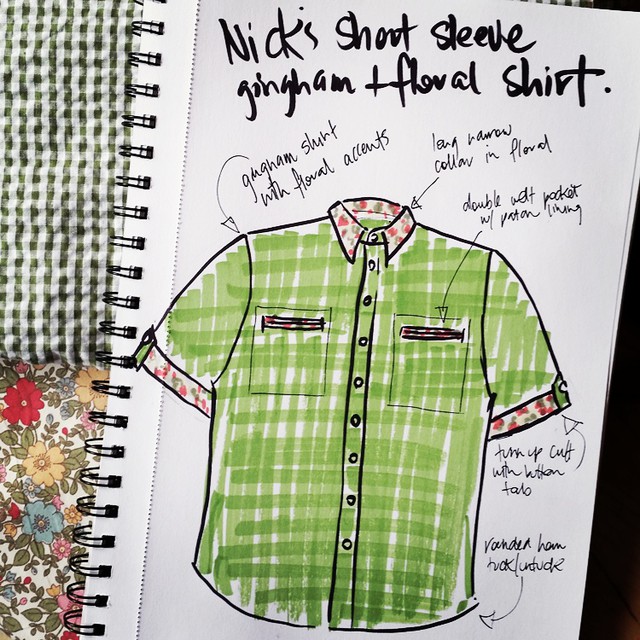 Nick's short sleeve
gingham + floral shirt.
gingham shirt
with floral accents
long narrow
collar in floral
double welt pocket
w/ lining
turn up cuff
with button
tab
rounded hem
tuck/untuck